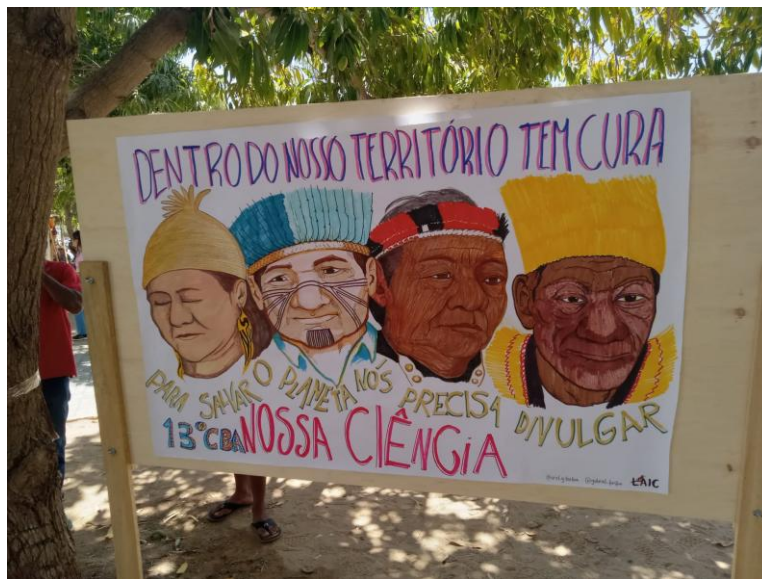 DENTRO DO NOSSO TERRITÓRIO TEM CURA
PARA SALVAR O PLANETA NÓS PRECISA DIVULGAR
13º CBA NOSSA CIÊNCIA
LAIC